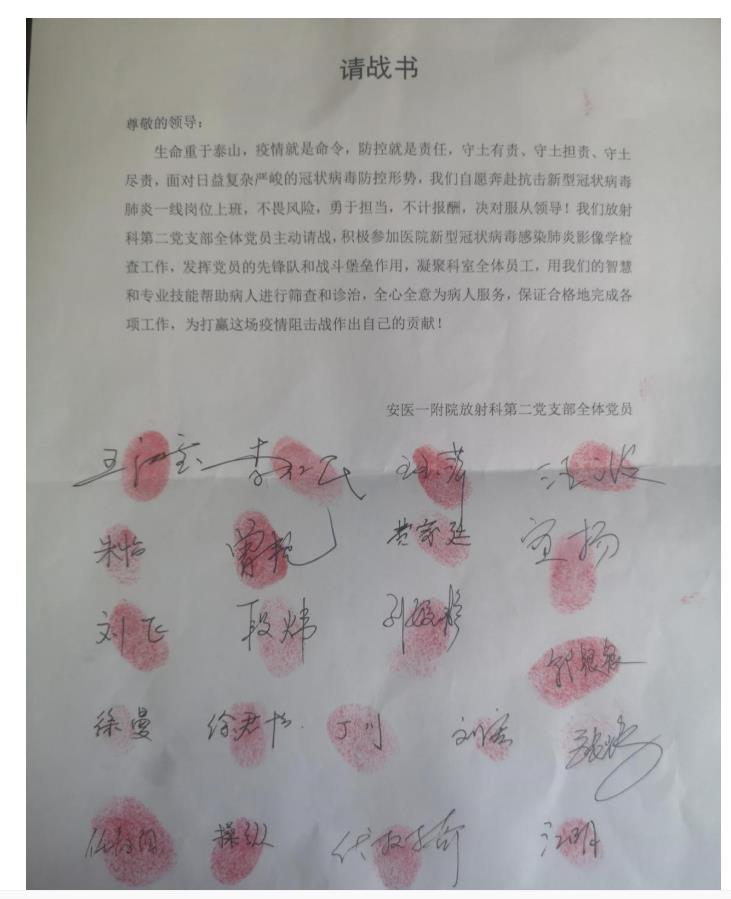 请战书
尊敬的领导：
生命重于泰山，疫情就是命令，防控就是责任，守土有责、守土担责、守土
尽责，面对日益复杂严峻的冠状病毒防控形势，我们自愿奔赴抗击新型冠状病毒
肺炎一线岗位上班，不畏风险，勇于担当，不计报酬，决对服从领导！我们放射
科第二党支部全体党员主动请战，积极参加医院新型冠状病毒感染肺炎影像学检
查工作，发挥党员的先锋队和战斗堡垒作用，凝聚科室全体员工，用我们的智慧
和专业技能帮助病人进行筛查和诊治，全心全意为病人服务，保证合格地完成各
项工作，为打赢这场疫情阻击战作出自己的贡献！
安医一附院放射科第二党支部全体党员
朱怡 黄家廷 宣扬
刘飞 段炜
徐曼 丁川
操纵 江明